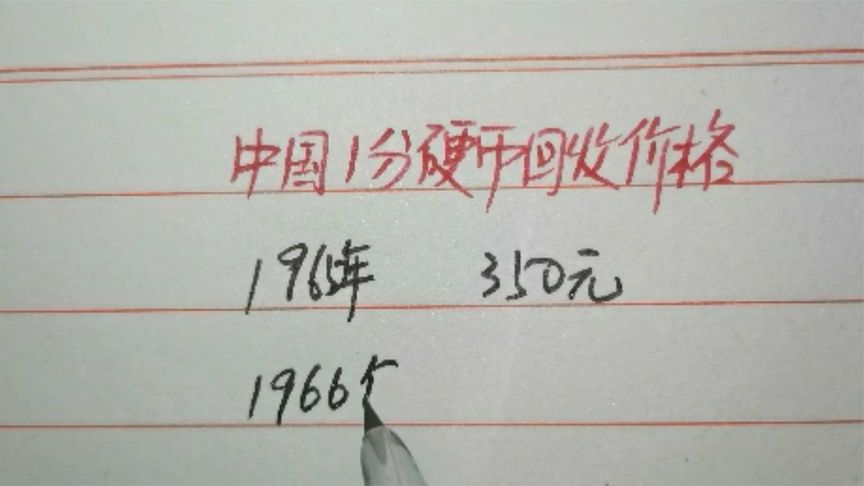 中国1分硬币回收价格
1965年 350元
1966